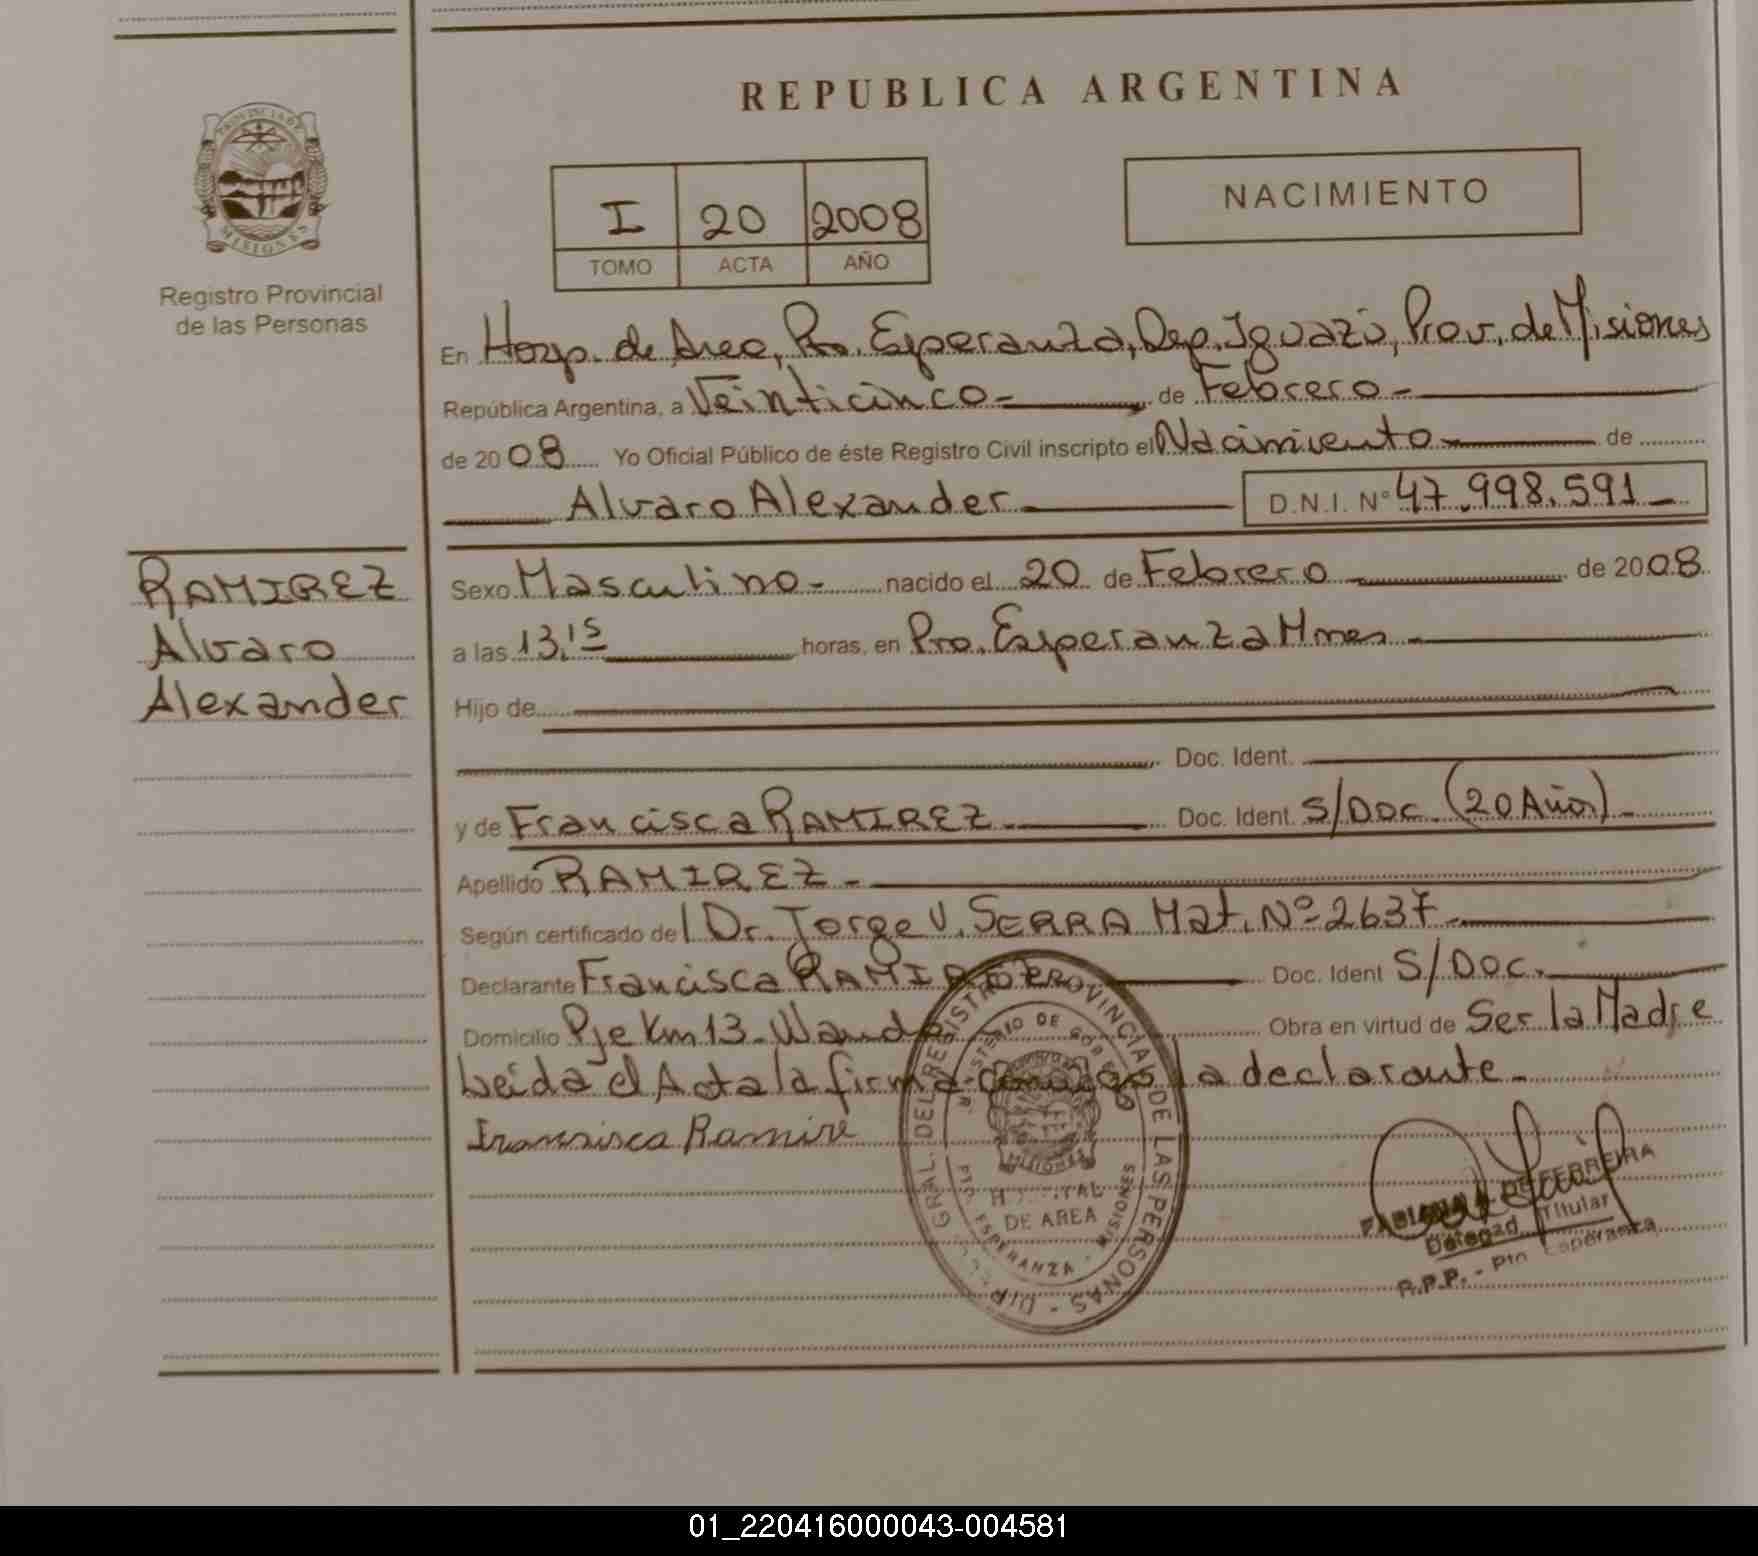 REPUBLICA ARGENTINA
PROVINCIA DE
MISIONES
Registro Provincial
de las Personas
I 20 2008
TOMO ACTA AÑO
NACIMIENTO
En Hosp. de Area, Pto. Esperanza, Dep. Iguazú, Prov. de Misiones
República Argentina, a Veinticinco- de Febrero-
de 2008 Yo Oficial Público de éste Registro Civil inscripto el Nacimiento de
Alvaro Alexander D.N.I. N° 47.998.591
RAMIREZ
Alvaro
Alexander
Sexo Masculino- nacido el 20 de Febrero de 2008
a las 13,15 horas, en Pto. Esperanza Mnes
Hijo de
Doc. Ident.
y de Francisca RAMIREZ Doc. Ident. S/DOC. (20 Años)-
Apellido RAMIREZ-
Según certificado del Dr. Jorge V. SERRA Mat. Nº 2637
Declarante Francisca RAMIREZ Doc. Ident S/DOC.
Domicilio Pje Km 13- Wanda Obra en virtud de Ser la Madre
Leida el Acta la firma conmigo la declarante-
Francisca Ramire
DIR. GRAL. DEL REGISTRO PROVINCIAL DE LAS PERSONAS -
MINISTERIO DE GOB
MISIONES
HOSPITAL
DE AREA
PTO. ESPERANZA - MISIONES
FABIANA DE FERREIRA
Delegad Titular
R.P.P. - Pto Esperanza
01_220416000043-004581